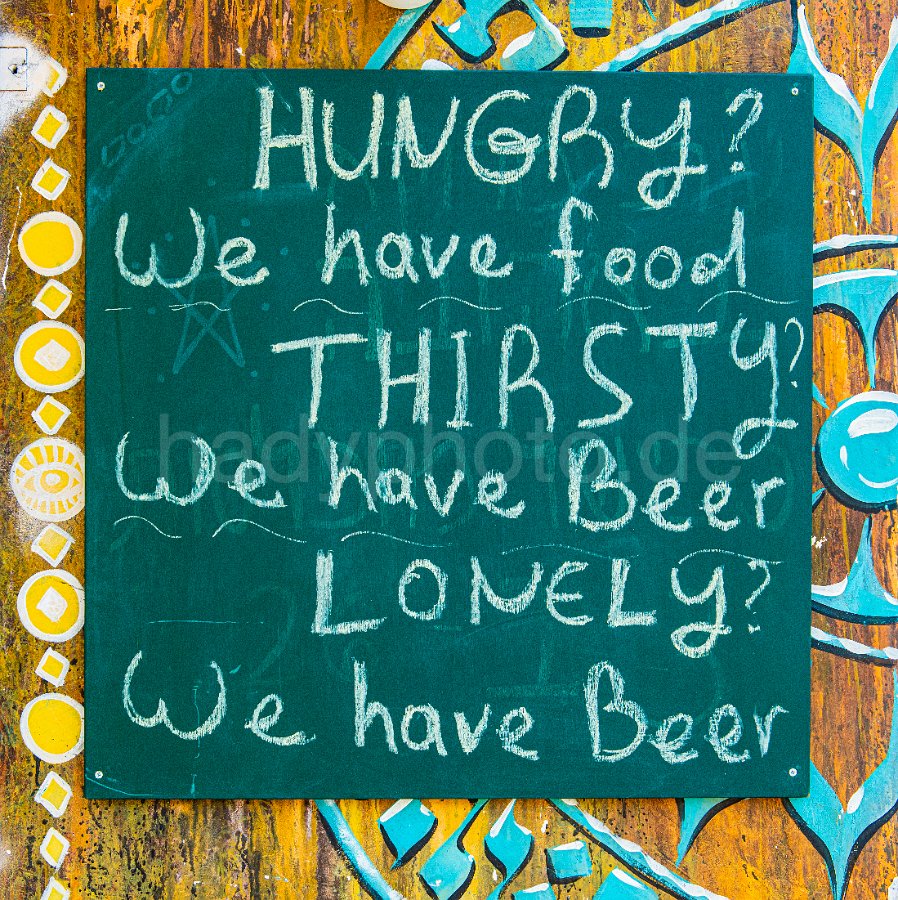 HUNGRY?
We have food
THIRSTY?
We have Beer
hadyphoto.de
LONELY?
We have Beer